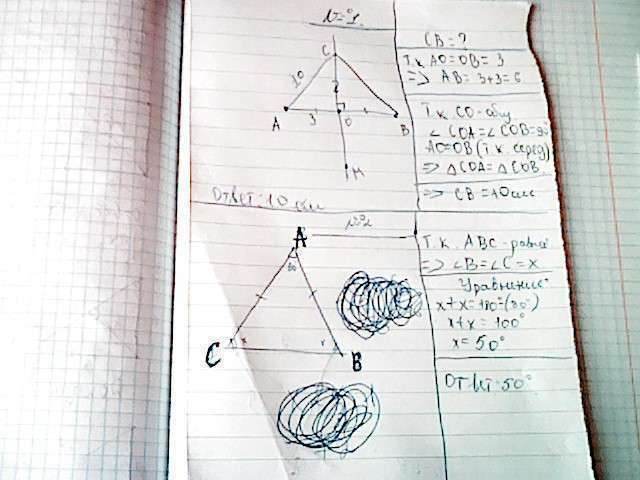 №1.
C
10
A
3
O
B
M
Ответ: 10 см
CB = ?
Т.к. AO = OB = 3
=> AB = 3+3 = 6
Т.к. CO - общ
∠COA = ∠COB = 90°
AO = OB (т.к. серед)
=> △COA = △COB
=> CB = 10 см
№2
A
80
x
C
B
Т.к. ABC - равно
=> ∠B = ∠C = x
Уравнение:
x+x = 180° - (80°)
x+x = 100°
x = 50°
Ответ: 50°